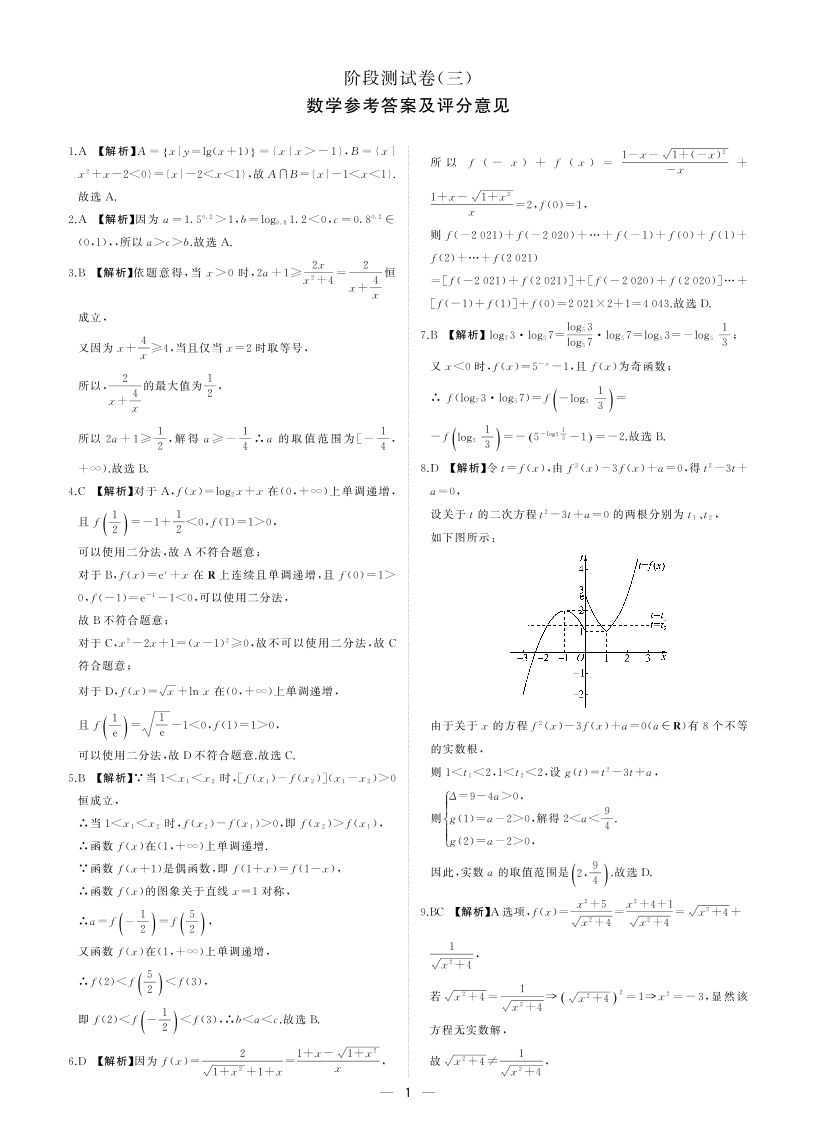 阶段测试卷(三)
数学参考答案及评分意见
1.A 【解析】A={x|y=lg(x+1)}={x|x>-1},B={x|
x²+x-2<0}={x|-2<x<1},故 A∩B={x|-1<x<1}.
故选 A.
2.A 【解析】因为 a=1.5^0.2>1,b=log_0.8 1.2<0,c=0.8^0.2∈
(0,1),,所以 a>c>b.故选 A.
3.B 【解析】依题意得,当 x>0 时,2a+1≥2x/(x²+4)=2/(x+4/x)恒
成立,
又因为 x+4/x≥4,当且仅当 x=2 时取等号,
所以,2/(x+4/x)的最大值为1/2,
所以 2a+1≥1/2,解得 a≥-1/4∴a 的取值范围为[-1/4,
+∞).故选 B.
4.C 【解析】对于 A,f(x)=log₂x+x 在(0,+∞)上单调递增,
且 f(1/2)=-1+1/2<0,f(1)=1>0,
可以使用二分法,故 A 不符合题意;
对于 B,f(x)=eˣ+x 在 R 上连续且单调递增,且 f(0)=1>
0,f(-1)=e⁻¹-1<0,可以使用二分法,
故 B 不符合题意;
对于 C,x²-2x+1=(x-1)²≥0,故不可以使用二分法,故 C
符合题意;
对于 D,f(x)=√x+ln x 在(0,+∞)上单调递增,
且 f(1/e)=√(1/e)-1<0,f(1)=1>0,
可以使用二分法,故 D 不符合题意.故选 C.
5.B 【解析】∵当 1<x₁<x₂ 时,[f(x₁)-f(x₂)](x₁-x₂)>0
恒成立,
∴当 1<x₁<x₂ 时,f(x₂)-f(x₁)>0,即 f(x₂)>f(x₁),
∴函数 f(x)在(1,+∞)上单调递增.
∵函数 f(x+1)是偶函数,即 f(1+x)=f(1-x),
∴函数 f(x)的图象关于直线 x=1 对称,
∴a=f(-1/2)=f(5/2),
又函数 f(x)在(1,+∞)上单调递增,
∴f(2)<f(5/2)<f(3),
即 f(2)<f(-1/2)<f(3),∴b<a<c.故选 B.
6.D 【解析】因为 f(x)=2/(√(1+x²)+1+x)=(1+x-√(1+x²))/x,
所以 f(-x)+f(x)=(1-x-√(1+(-x)²))/(-x)+
(1+x-√(1+x²))/x=2,f(0)=1,
则 f(-2 021)+f(-2 020)+…+f(-1)+f(0)+f(1)+
f(2)+…+f(2 021)
=[f(-2 021)+f(2 021)]+[f(-2 020)+f(2 020)]…+
[f(-1)+f(1)]+f(0)=2 021×2+1=4 043.故选 D.
7.B 【解析】log₇3·log₅7=(log₅3/log₅7)·log₅7=log₅3=-log₅ 1/3;
又 x<0 时,f(x)=5⁻ˣ-1,且 f(x)为奇函数;
∴ f(log₇3·log₅7)=f(-log₅ 1/3)=
-f(log₅ 1/3)=-(5^(-log₅ 1/3)-1)=-2.故选 B.
8.D 【解析】令 t=f(x),由 f²(x)-3f(x)+a=0,得 t²-3t+
a=0,
设关于 t 的二次方程 t²-3t+a=0 的两根分别为 t₁、t₂,
如下图所示:
4
t=f(x)
3
2
1
-3 -2 -1 O 1 2 3 x
-1
-2
由于关于 x 的方程 f²(x)-3f(x)+a=0(a∈R)有 8 个不等
的实数根,
则 1<t₁<2,1<t₂<2,设 g(t)=t²-3t+a,
Δ=9-4a>0,
则{g(1)=a-2>0,解得 2<a<9/4.
g(2)=a-2>0,
因此,实数 a 的取值范围是(2,9/4).故选 D.
9.BC 【解析】A 选项,f(x)=(x²+5)/√(x²+4)=(x²+4+1)/√(x²+4)=√(x²+4)+
1/√(x²+4),
若 √(x²+4)=1/√(x²+4)⇒(√(x²+4))²=1⇒x²=-3,显然该
方程无实数解,
故 √(x²+4)≠1/√(x²+4),
— 1 —